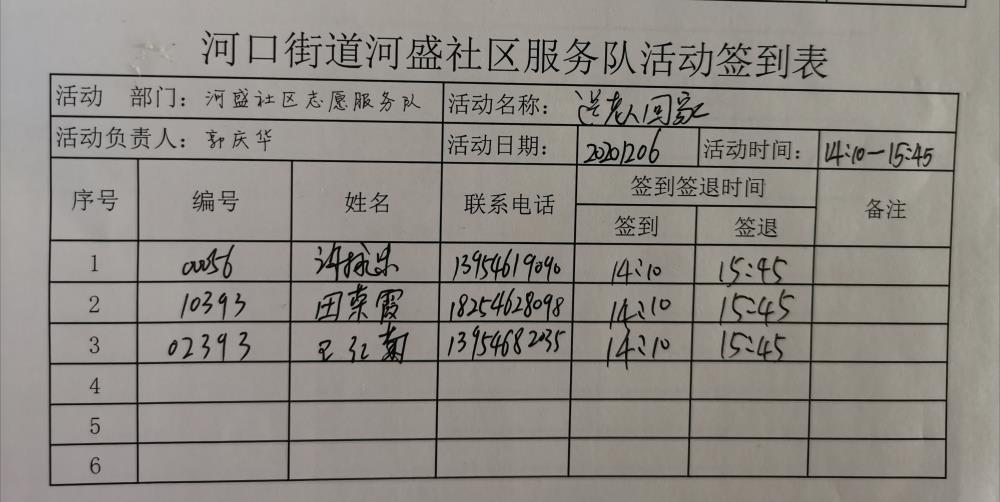 河口街道河盛社区服务队活动签到表
活动 部门：河盛社区志愿服务队 活动名称：送老人回家
活动负责人：郭庆华 活动日期：20201206 活动时间：14:10—15:45
序号 编号 姓名 联系电话 签到签退时间 备注
签到 签退
1 00056 13954619090 14:10 15:45
2 10393 田荣霞 18254628098 14:10 15:45
3 02393 王红菊 13954682035 14:10 15:45
4
5
6